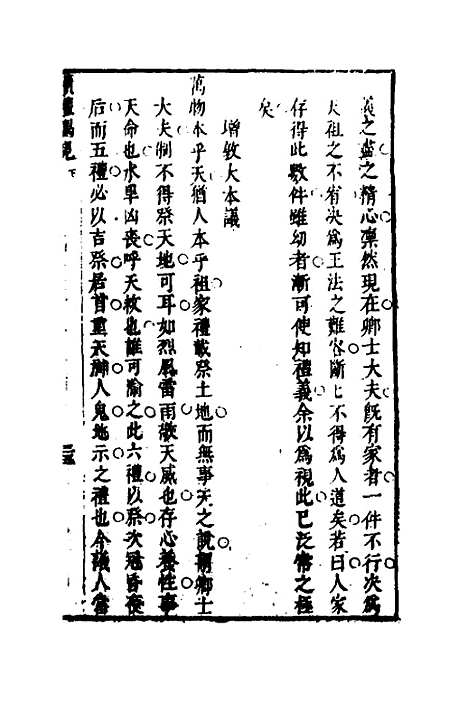 義之蓋之精心凜然現在鄉士大夫既有家者一件不行次為
夫祖之不宥决為王法之難容斷上不得為人道矣若曰人家
存得此數件雖幼者漸可使知禮義余以為視此已泛常之極
矣
增敎大本議
萬物本乎天猶人本乎祖家禮載祭土地而無事天之說謂鄉士
大夫制不得祭天地可耳如烈風雷雨敬天威也存心養性事
天命也水旱凶喪呼天救也誰可諭之此六禮以祭次冠昏喪
后而五禮必以吉祭居首重天神人鬼地示之禮也今議人當
禮 見 下